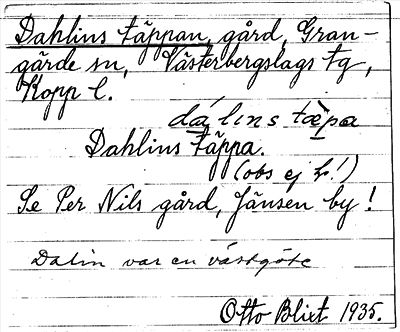 Dahlins täppan, gård, Gran-
gärde sn, Västerbergslags tg,
Kopp l.
dá lıns tæpa
Dahlins täppa.
(obs ej h!)
Se Per Nils gård, Jänsen by!
Dalin var en västgöte
Otto Blixt 1935.